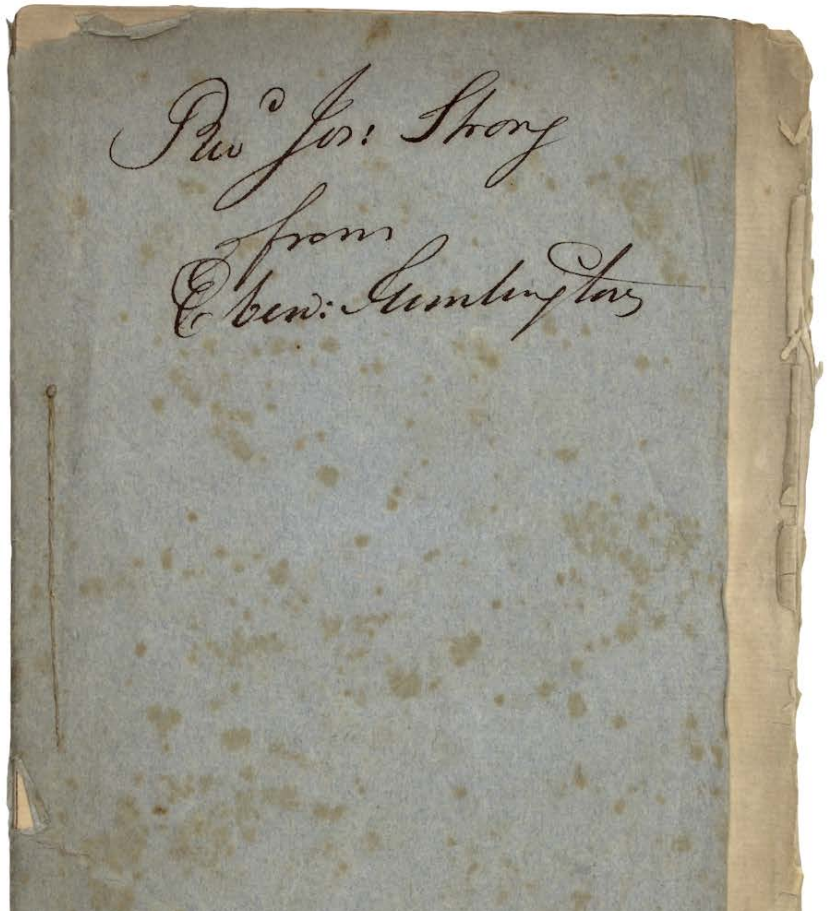 Revᵈ Jos: Strong
from
Eben: Huntington